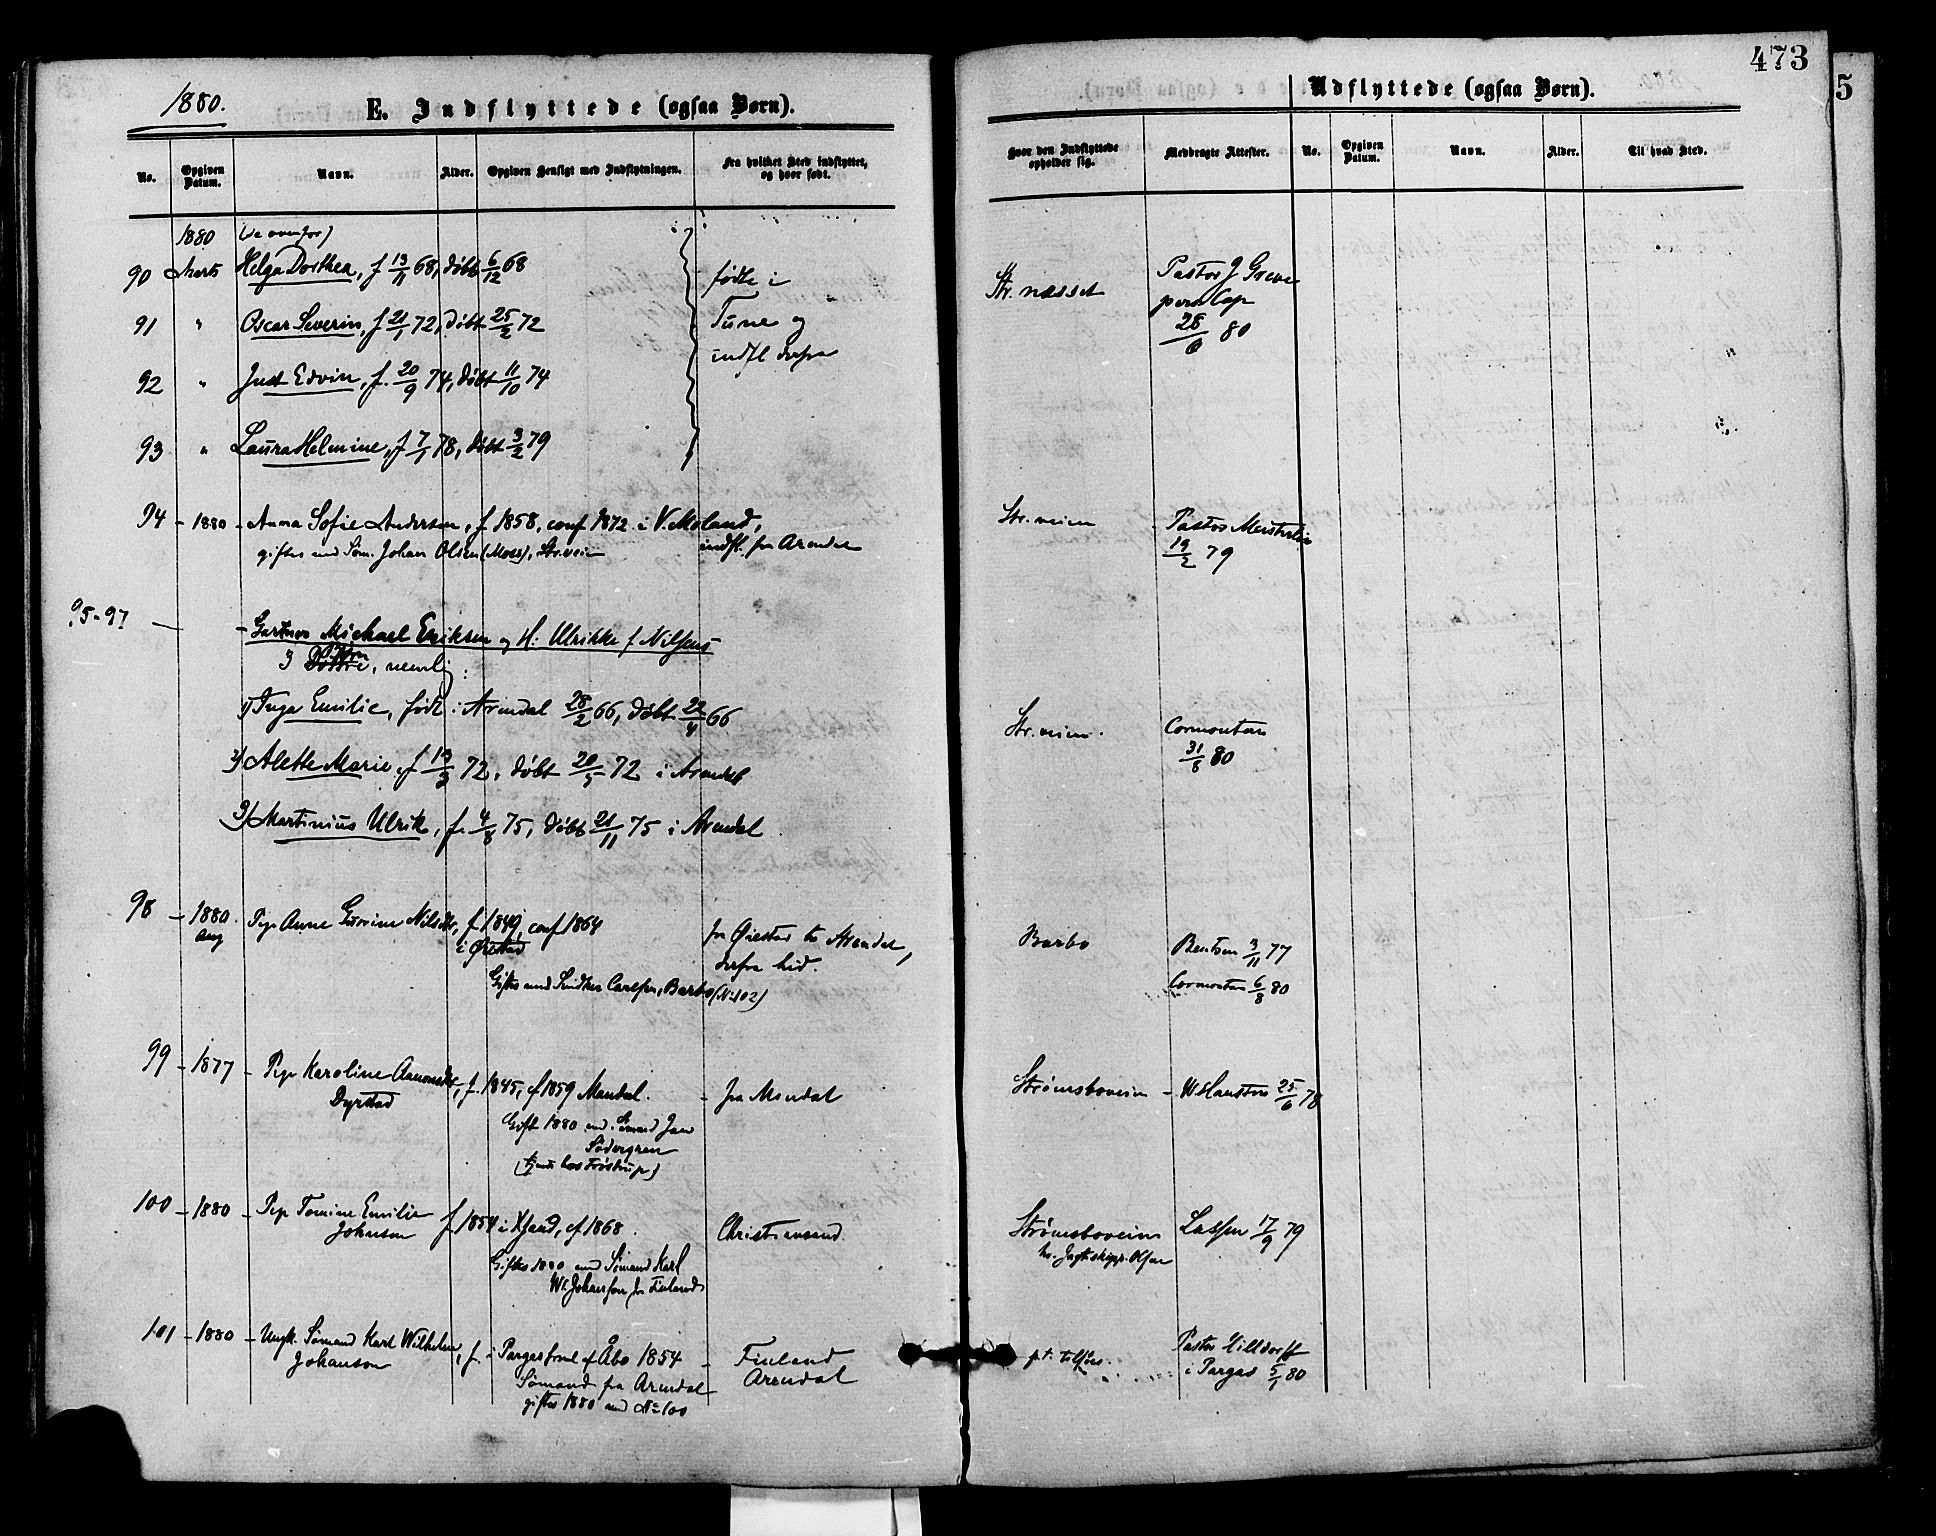 473
5
1880.
E. Indflyttede (ogsaa Børn).
Udflyttede (ogsaa Børn).
No.
Opgiven Datum.
Navn.
Alder.
Opgiven Hensigt med Indflytningen.
Fra hvilket Sted indflyttet, og hvor født.
Hvor den Indflyttede opholder sig.
Medbragte Attester.
No.
Opgiven Datum.
Navn.
Alder.
Til hvad Sted.
1880 (se ovenfor)
90 Marts Helga Dorthea, f 13/11 68, døbt 6/12 68
91 " Oscar Severin, f 21/1 72, døbt 25/2 72
92 " Just Edvin, f. 20/9 74, døbt 11/10 74
93 " Laura Helmine, f 7/1 78, døbt 3/2 79
fødte i
Tune og
indfl derfra
Str. næsset
Pastor J Greve
pers Cap
28/6 80
94 - 1880 - Anna Sofie Andersen, f 1858, conf 1872 i V. Moland,
giftes med Søm. Johan Olsen (Moss), Str.veien
indfl. fra Arendal
Str. veien
Pastor
19/2 79
95-97 - Gartner Michael Eriksen og H: Ulrikke f Nilsens
3 Børn, nemlig:
1) Inga Emilie, født i Arendal 28/2 66, døbt 22/4 66
2) Alette Marie, f 13/3 72, døbt 20/5 72 i Arendal
3) Martinius Ulrik, f. 4/8 75, døbt 21/11 75 i Arendal
Str. veien.
Cormontan
31/8 80
98 - 1880. Pige Anne Nilsdtr, f 1849, conf 1864
Aug
i Øiestad
Giftes med Carlsen, Barbo (No 102)
fra Øiestad til Arendal,
derfra hid.
Barbo
Bentsen 3/11 77
Cormontan 6/8 80
99 - 1877 - Pige Karoline Aanonsdtr, f. 1845, cf 1859 Mandal. - fra Mandal
Dyrstad
Gift 1880 med Sømand Jan
Södergren
(tjente hos Frøstrup)
Strømsboveien - W. Hansteen 25/6 78
100 - 1880 - Pige Tomine Emilie
Johnsen f 1854 i Xsand, cf 1868.
Giftes 1880 med Sømand Karl
W. Johansson fra Finland
Christiansand
Strømsboveien
hos Jagtskipp. Olsen
Lassen 17/9 79
101 - 1880 - Ungk. Sømand Karl Wilhelm
Johanson, f. i Pargas cf Åbo 1854 -
Sømand fra Arendal
giftes 1880 med No 100
Finland
Arendal
p.t. tilsøes.
Pastor
i Pargas 5/1 80